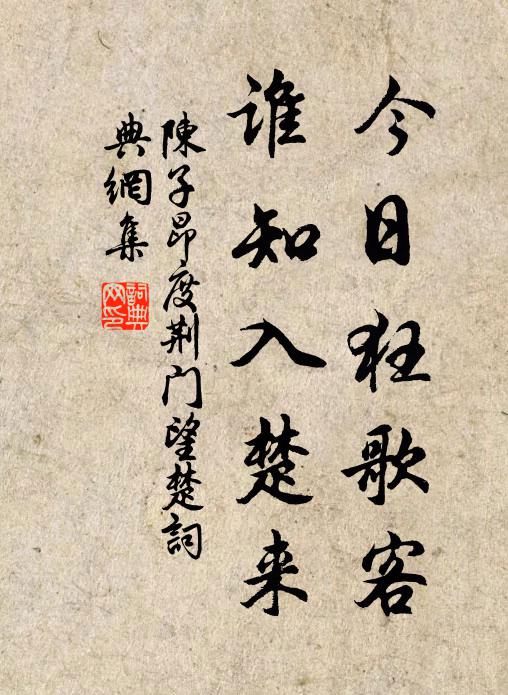 今日狂歌客
谁知入楚来
陳子昂度荆门望楚詞
典網集
詞典网印